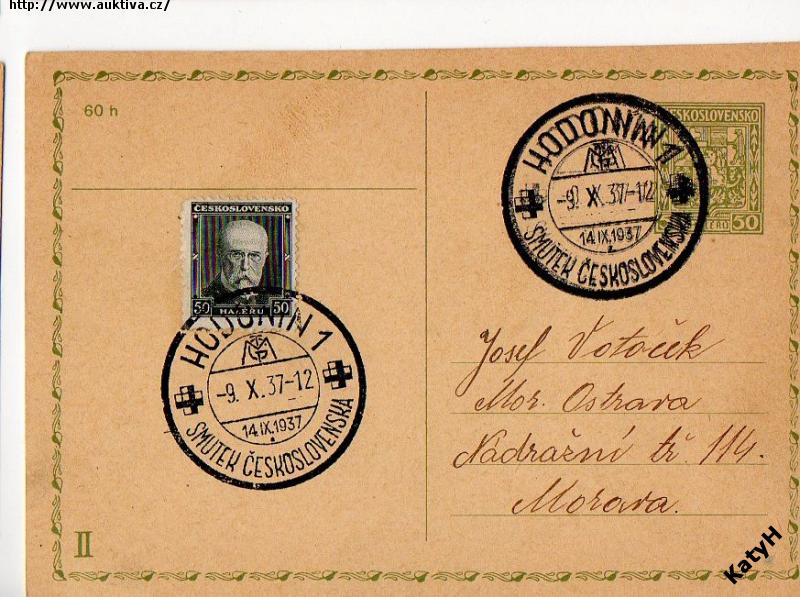 http://www.auktiva.cz/
60 h
ČESKOSLOVENSKO
50 50
HALÉŘŮ
HODONÍN 1
-9. X. 37-12
14 IX. 1937
SMUTEK ČESKOSLOVENSKA
ČESKOSLOVENSKO
50
HALÉŘŮ
HODONÍN 1
-9. X. 37-12
14 IX. 1937
SMUTEK ČESKOSLOVENSKA
Josef Votoček
Mor. Ostrava
Nádražní tř. 114.
Morava.
II
KatyH